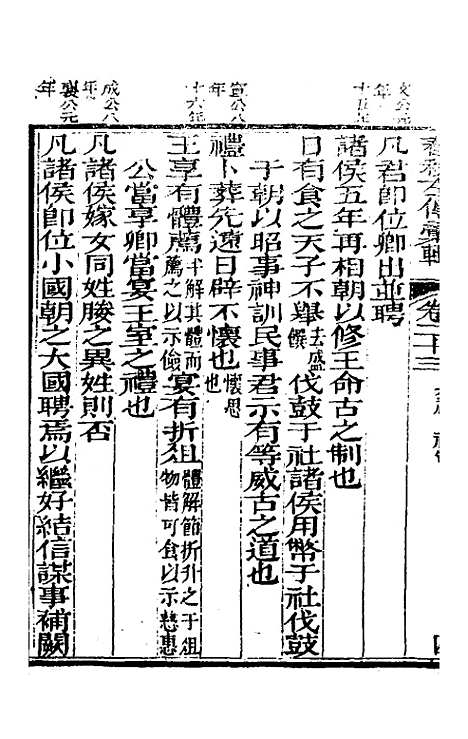 春秋左傳彙輯 卷二十三
文公元年
凡君即位卿出並聘
十五年
諸侯五年再相朝以修王命古之制也
日有食之天子不舉去盛饌伐鼓于社諸侯用幣于社伐鼓
于朝以昭事神訓民事君示有等威古之道也
宣公八年
禮卜葬先遠日辟不懷也懷思也
十六年
王享有體薦半解其體而薦之以示儉宴有折俎體解節折升之于俎物皆可食以示慈惠
公當享卿當宴王室之禮也
成公八年
凡諸侯嫁女同姓媵之異姓則否
襄公元年
凡諸侯即位小國朝之大國聘焉以繼好結信謀事補闕